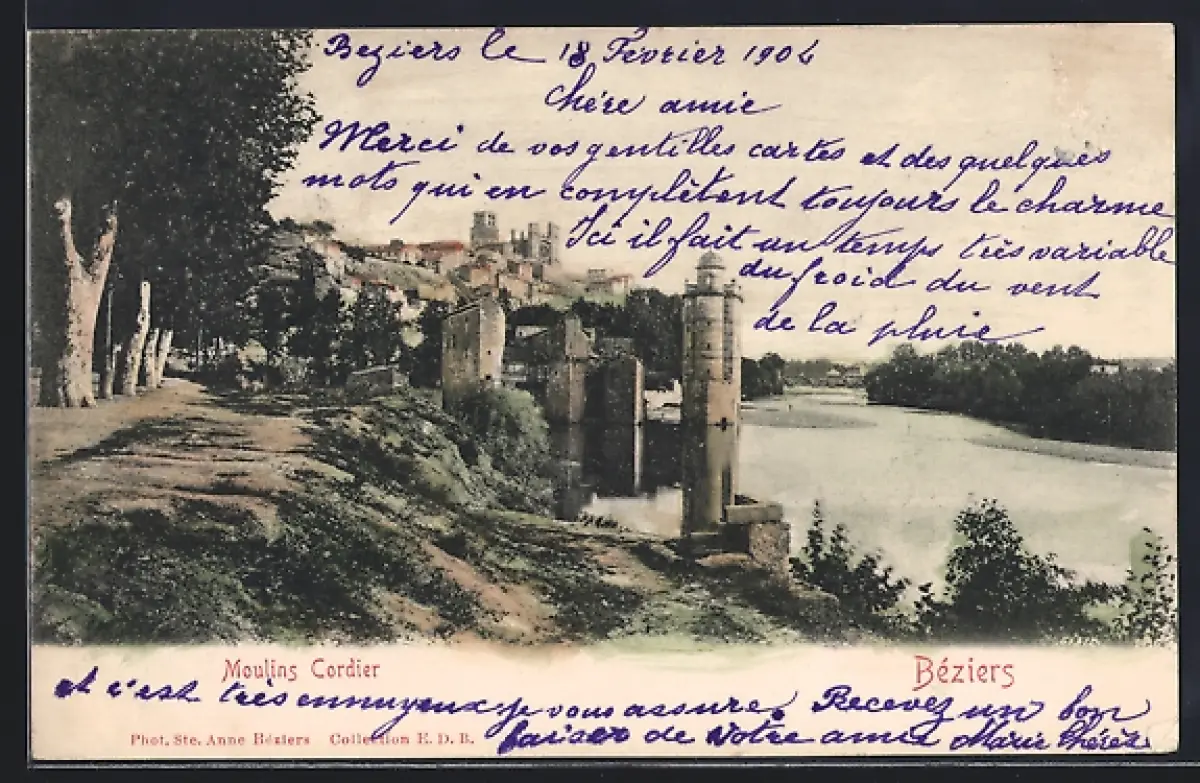 Beziers le 18 Fevrier 1904
Chére amie
Merci de vos gentilles cartes et des quelques
mots qui en complêtent toujours le charme
Ici il fait un temps très variable
du froid du vent
de la pluie
Moulins Cordier
Béziers
et c'est très ennuyeux je vous assure. Recevez un bon
baiser de Votre amie Marie Thérèse
Phot. Ste. Anne Béziers Collection E. D. B.